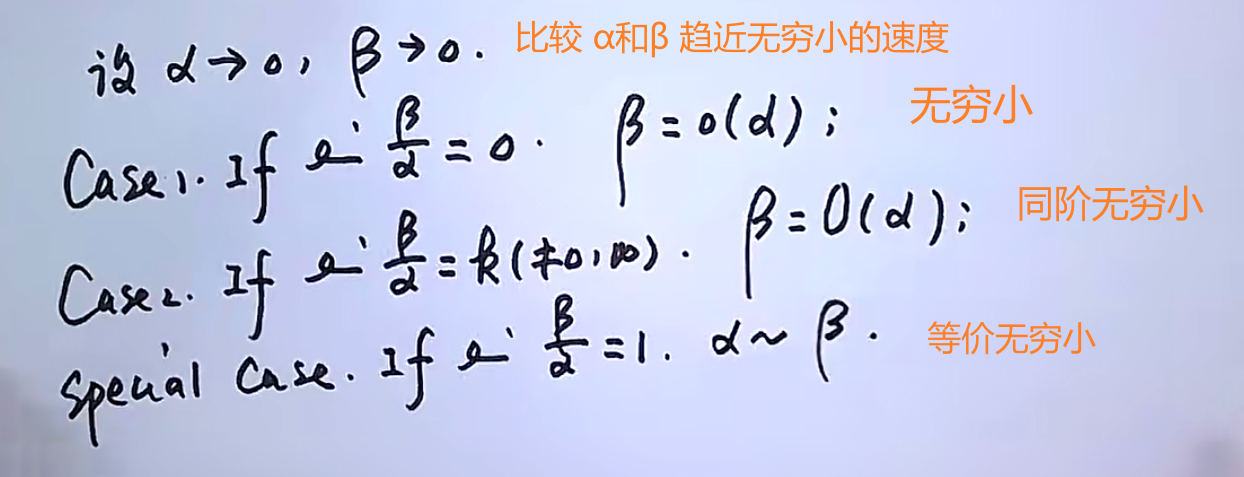 设 α→0, β→0. 比较 α和β 趋近无穷小的速度
Case1. If lim β/α = 0. β = o(α); 无穷小
Case2. If lim β/α = k(≠0,∞). β = O(α); 同阶无穷小
special case. If lim β/α = 1. α ~ β. 等价无穷小